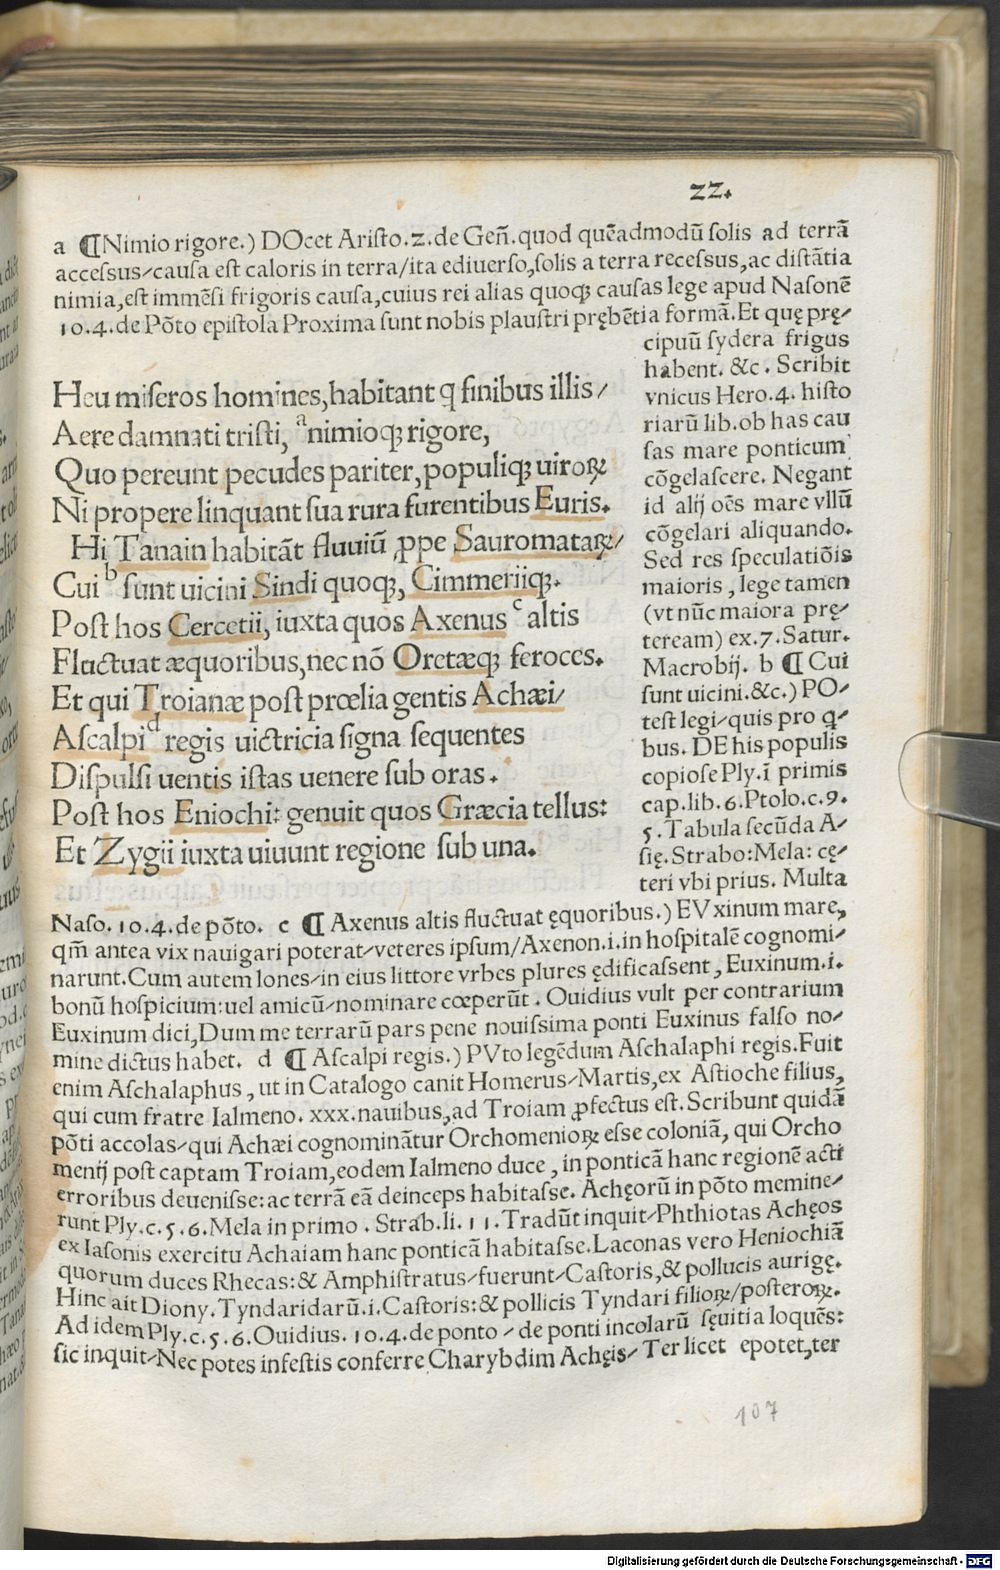 22.
a ¶Nimio rigore.) DOcet Aristo.2.de Gen̄.quod quẽadmodũ solis ad terrã
accessus/causa est caloris in terra/ita ediuerso,solis a terra recessus,ac distãtia
nimia,est immẽsi frigoris causa,cuius rei alias quoqꝫ causas lege apud Nasonẽ
10.4.de Põto epistola Proxima sunt nobis plaustri prębẽtia formã.Et quę prę/
cipuũ sydera frigus
habent. &c. Scribit
vnicus Hero.4. histo
riarũ lib.ob has cau
sas mare ponticum
cõgelascere. Negant
id alij oẽs mare vllũ
cõgelari aliquando.
Sed res speculatiõis
maioris, lege tamen
(vt nũc maiora prę/
teream) ex.7.Satur.
Macrobij. b ¶ Cui
sunt uicini.&c.) PO/
test legi/quis pro q̃/
bus. DE his populis
copiose Ply.ĩ primis
cap.lib.6.Ptolo.c.9.
5.Tabula secũda A/
się.Strabo:Mela: cę/
teri vbi prius. Multa
Heu miseros homines,habitant q̃ finibus illis/
Aere damnati tristi, ᵃnimioqꝫ rigore,
Quo pereunt pecudes pariter,populiqꝫ uiroꝝ
Ni propere linquant sua rura furentibus Euris.
Hi Tanain habitãt fluuiũ ꝓpe Sauromataꝝ/
Cui ᵇ sunt uicini Sindi quoqꝫ, Cimmeriiqꝫ.
Post hos Cercetii, iuxta quos Axenus ᶜ altis
Fluctuat æquoribus,nec nõ Oretæqꝫ feroces.
Et qui Troianæ post prœlia gentis Achæi/
Ascalpi ᵈ regis uictricia signa sequentes
Dispulsi uentis istas uenere sub oras.
Post hos Eniochi: genuit quos Græcia tellus:
Et Zygii iuxta uiuunt regione sub una.
Naso.10.4.de põto. c ¶ Axenus altis fluctuat ęquoribus.) EVxinum mare,
qm̃ antea vix nauigari poterat/veteres ipsum/Axenon.i.in hospitalẽ cognomi/
narunt.Cum autem Iones/in eius littore vrbes plures ędificassent, Euxinum.i.
bonũ hospicium:uel amicũ/nominare cœperũt. Ouidius vult per contrarium
Euxinum dici,Dum me terrarũ pars pene nouissima ponti Euxinus falso no/
mine dictus habet. d ¶ Ascalpi regis.) PVto legẽdum Aschalaphi regis.Fuit
enim Aschalaphus, ut in Catalogo canit Homerus/Martis,ex Astioche filius,
qui cum fratre Ialmeno.xxx.nauibus,ad Troiam ꝓfectus est.Scribunt quidã
põti accolas/qui Achæi cognominãtur Orchomenioꝝ esse coloniã, qui Orcho
menij post captam Troiam,eodem Ialmeno duce, in ponticã hanc regionẽ acti
erroribus deuenisse:ac terrã eã deinceps habitasse. Achęorũ in põto memine/
runt Ply.c.5.6.Mela in primo. Strab.li.11.Tradũt inquit/Phthiotas Achęos
ex Iasonis exercitu Achaiam hanc ponticã habitasse.Laconas vero Heniochiã
quorum duces Rhecas:& Amphistratus/fuerunt/Castoris,& pollucis aurigę.
Hinc ait Diony.Tyndaridarũ.i.Castoris:& pollicis Tyndari filioꝝ/posteroꝝ.
Ad idem Ply.c.5.6.Ouidius.10.4.de ponto/de ponti incolarũ sęuitia loquẽs:
sic inquit/Nec potes infestis conferre Charybdim Achęis/Ter licet epotet,ter
107
Digitalisierung gefördert durch die Deutsche Forschungsgemeinschaft - DFG